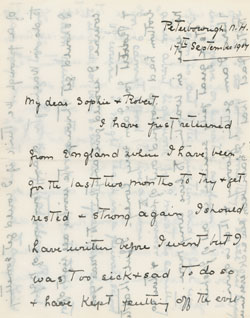 Peterborough N.H.
17th September 1904
My dear Sophie & Robert
I have just returned
from England where I have been
for the last two months to try & get
rested & strong again. I should
have written before I went but I
was too sick & sad to do so
& have kept putting off the evil